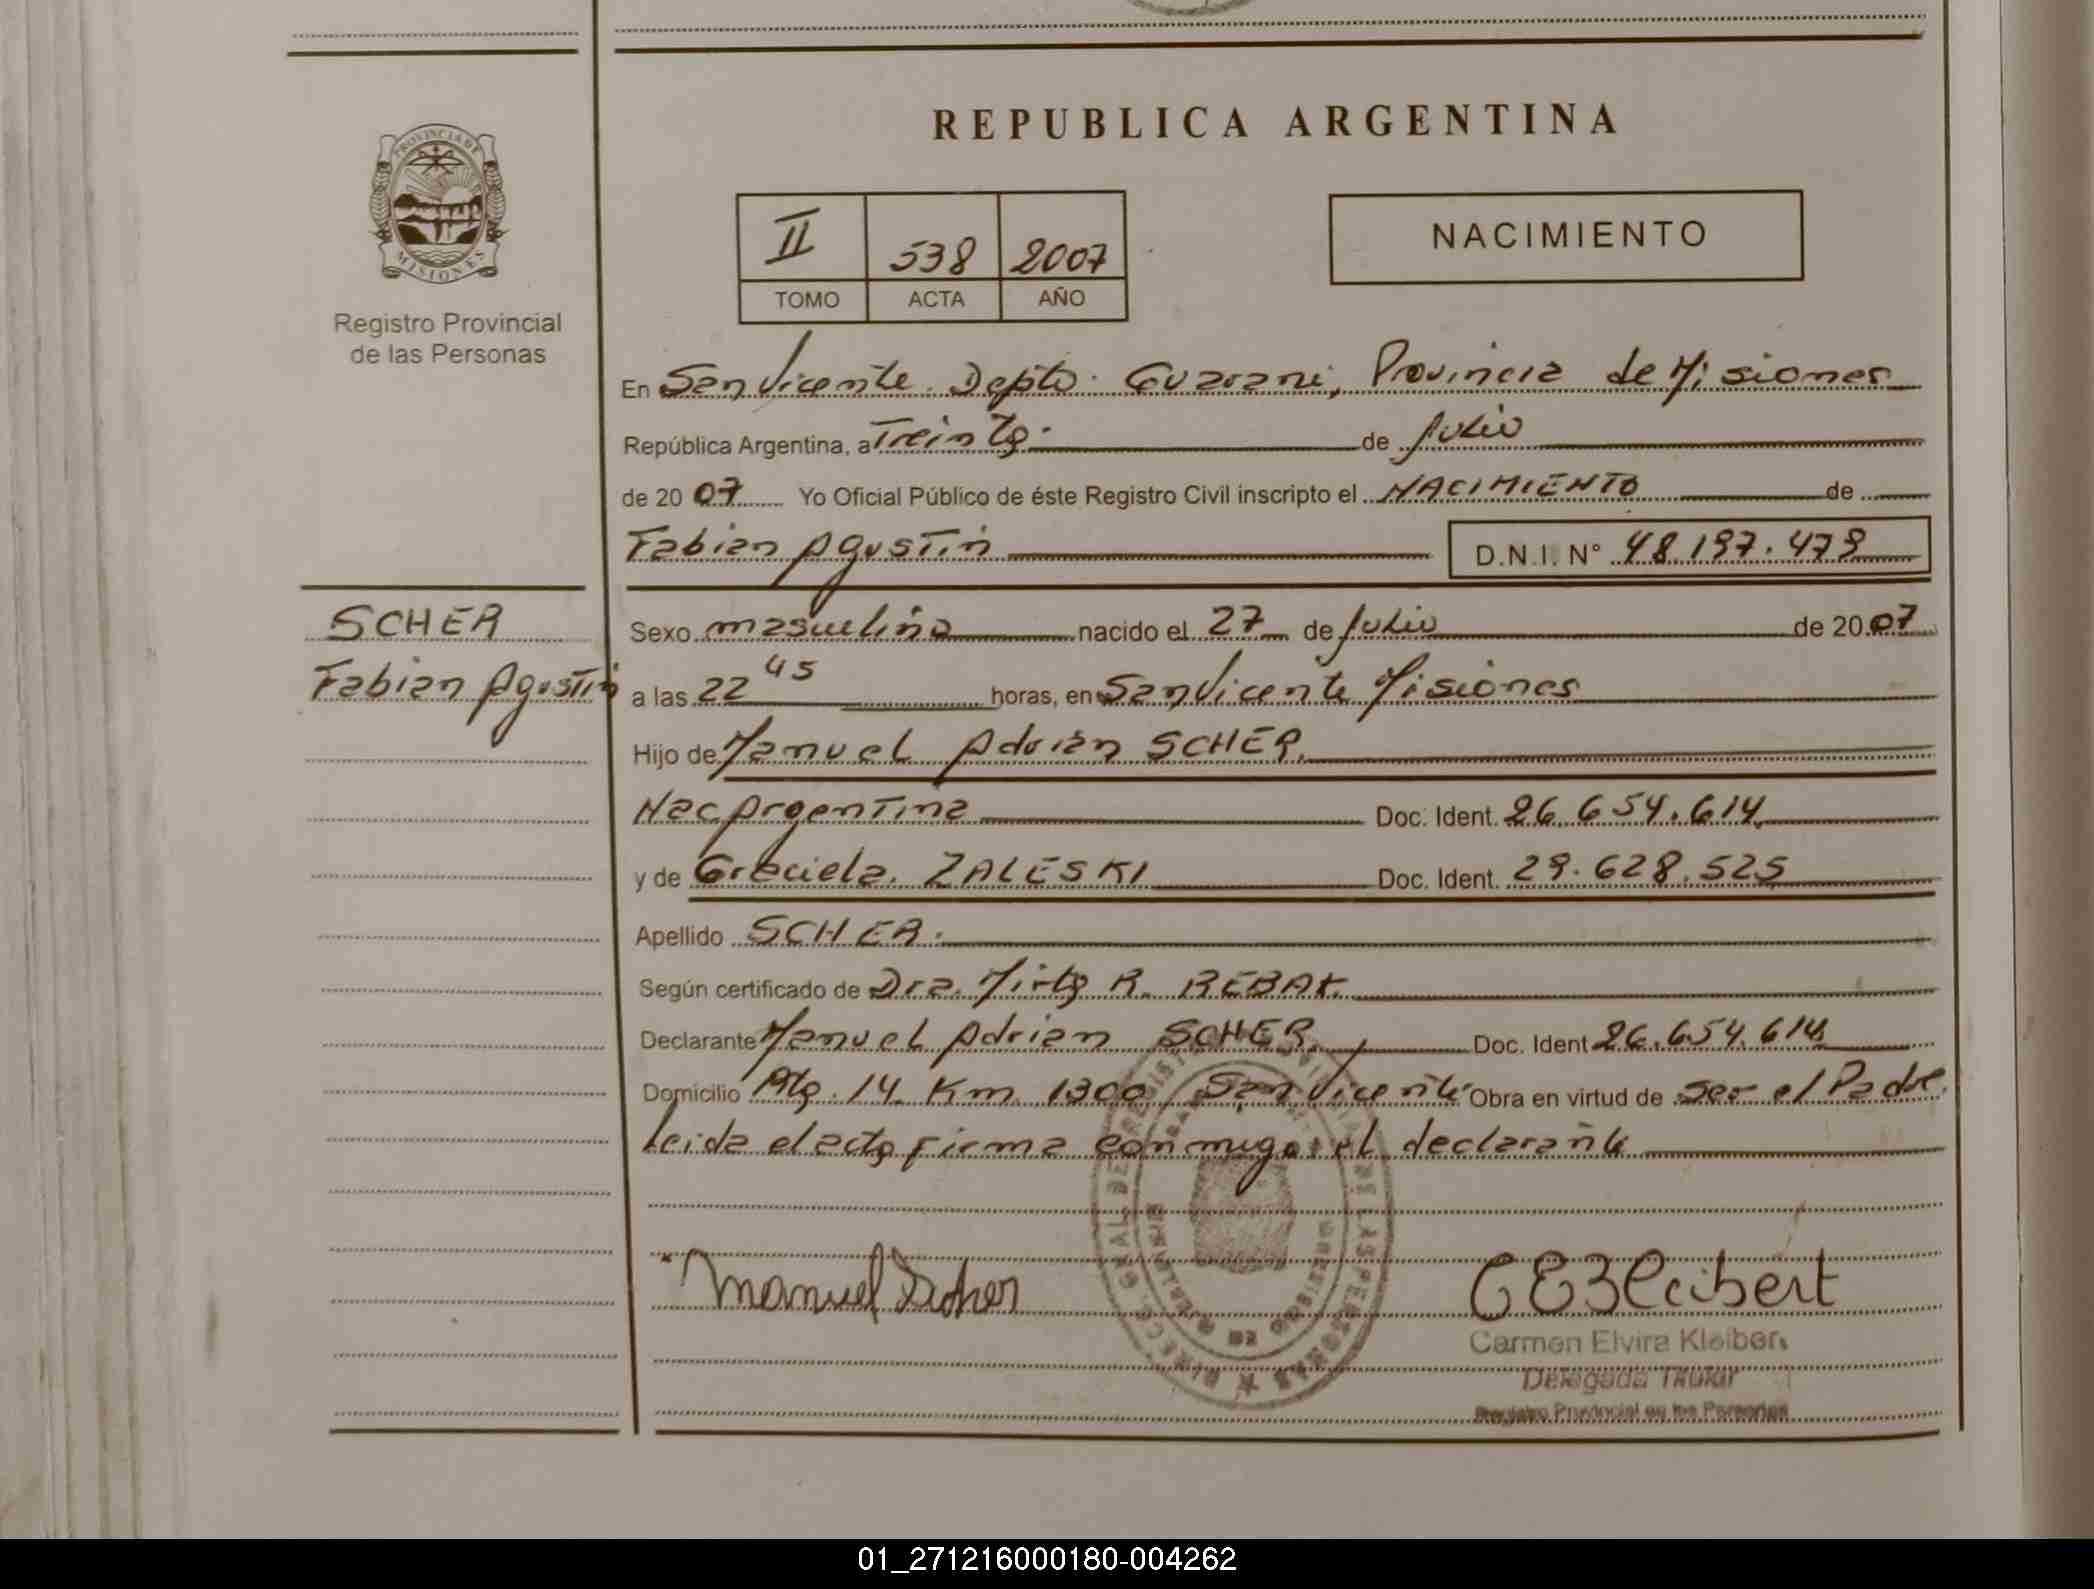 REPUBLICA ARGENTINA
PROVINCIA DE
MISIONES
Registro Provincial
de las Personas
II 538 2007
TOMO ACTA AÑO
NACIMIENTO
En San Vicente. Depto. Guarani, Provincia de Misiones
República Argentina, a Treinta. de Julio
de 2007 Yo Oficial Público de éste Registro Civil inscripto el NACIMIENTO de
Fabian Agustin D.N.I. N° 48.197.479
SCHER
Fabian Agustin
Sexo masculino nacido el 27 de Julio de 2007
a las 22 45 horas, en San Vicente Misiones
Hijo de Manuel Adrian SCHER.
Nac Argentina Doc. Ident. 26.654.614
y de Graciela. ZALESKI Doc. Ident. 29.628.525
Apellido SCHER.
Según certificado de Dra. Mirta R. REBAK.
Declarante Manuel Adrian SCHER. Doc. Ident 26.654.614
Domicilio Rta. 14 Km 1300 San Vicente Obra en virtud de ser el Padre.
Leida el acta firma conmigo el declarante
Manuel Scher
C E Kleibert
Carmen Elvira Kleiber
Delegada Titular
Registro Provincial de las Personas
01_271216000180-004262